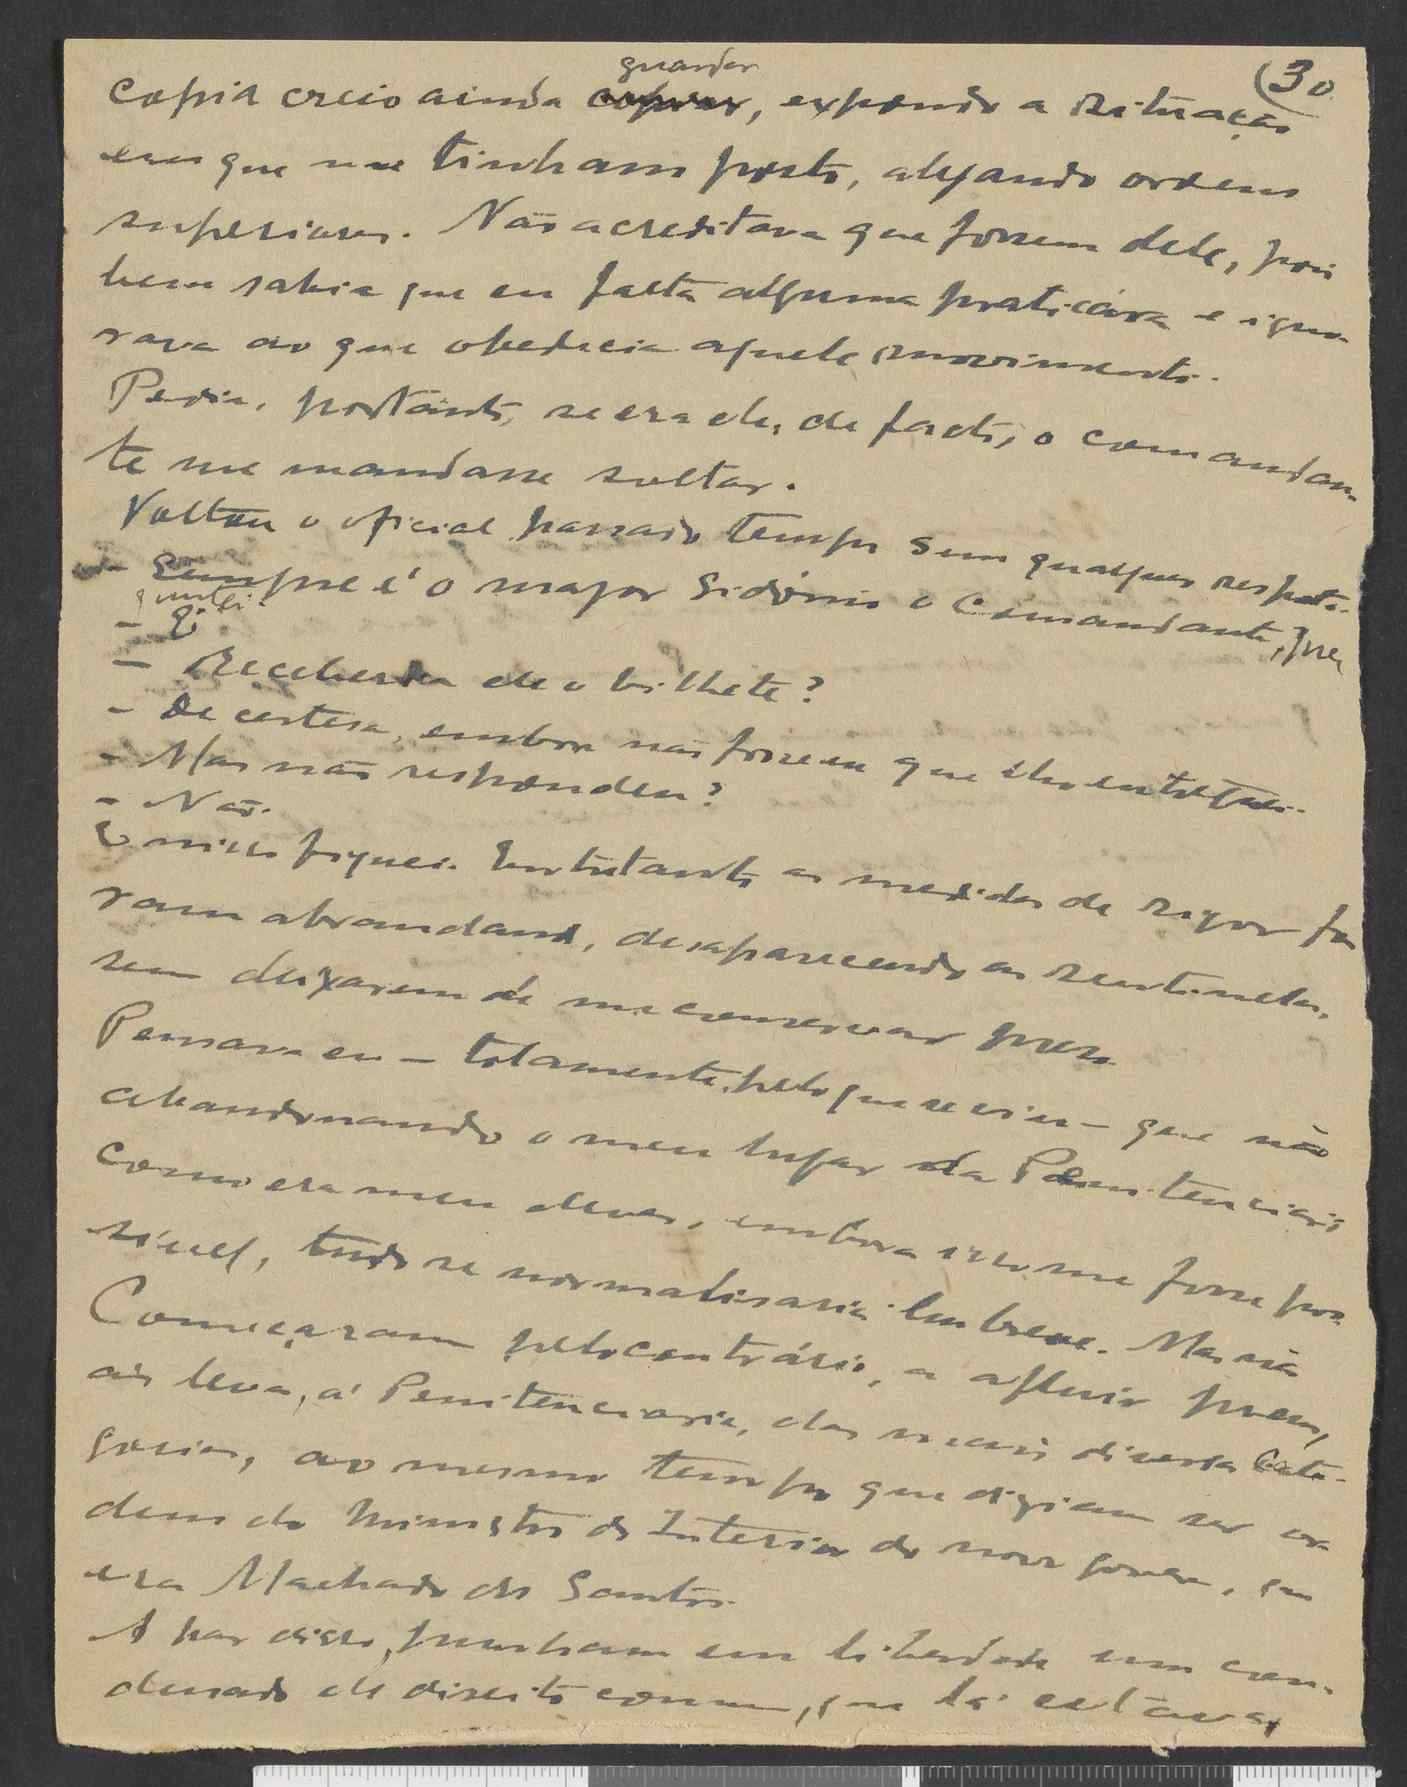 (30
copia creio ainda guardar, expondo a situação
em que me tinham posto, alegando ordens
superiores. Não acreditava que fossem dele, pois
bem sabia que eu falta alguma praticára e igno-
rava ao que obedecia aquele movimento.
Pedia, portanto, se era ele, de facto, o comandan-
te me mandasse soltar.
Voltou o oficial passado tempo sem qualquer resposta.
- Sempre é o major Sidónio o Comandante, per
guntei.
- É
- Receberia ele o bilhete?
- De certesa, embora não fosse eu que lho entreguei.
- Mas não respondeu?
- Não.
E nisso fiquei. Entretanto as medidas de rigor fo
ram abrandando, desaparecendo as sentinelas,
sem deixarem de me conservar preso.
Pensava eu - tolamente, pelo que se viu - que não
abandonando o meu lugar da Penitenciaria
como era meu dever, embora isso me fosse pos-
sivel, tudo se normalisaria em breve. Mas não
Começaram pelo contrário, a afluir presos,
ás levas, á Penitenciaria, das mais diversas cate-
gorias, ao mesmo tempo que diziam ser or
dem do Ministro do Interior do novo governo, que
era Machado dos Santos.
A par disso, punham em liberdade um con-
denado de direito comum, que lá estava,